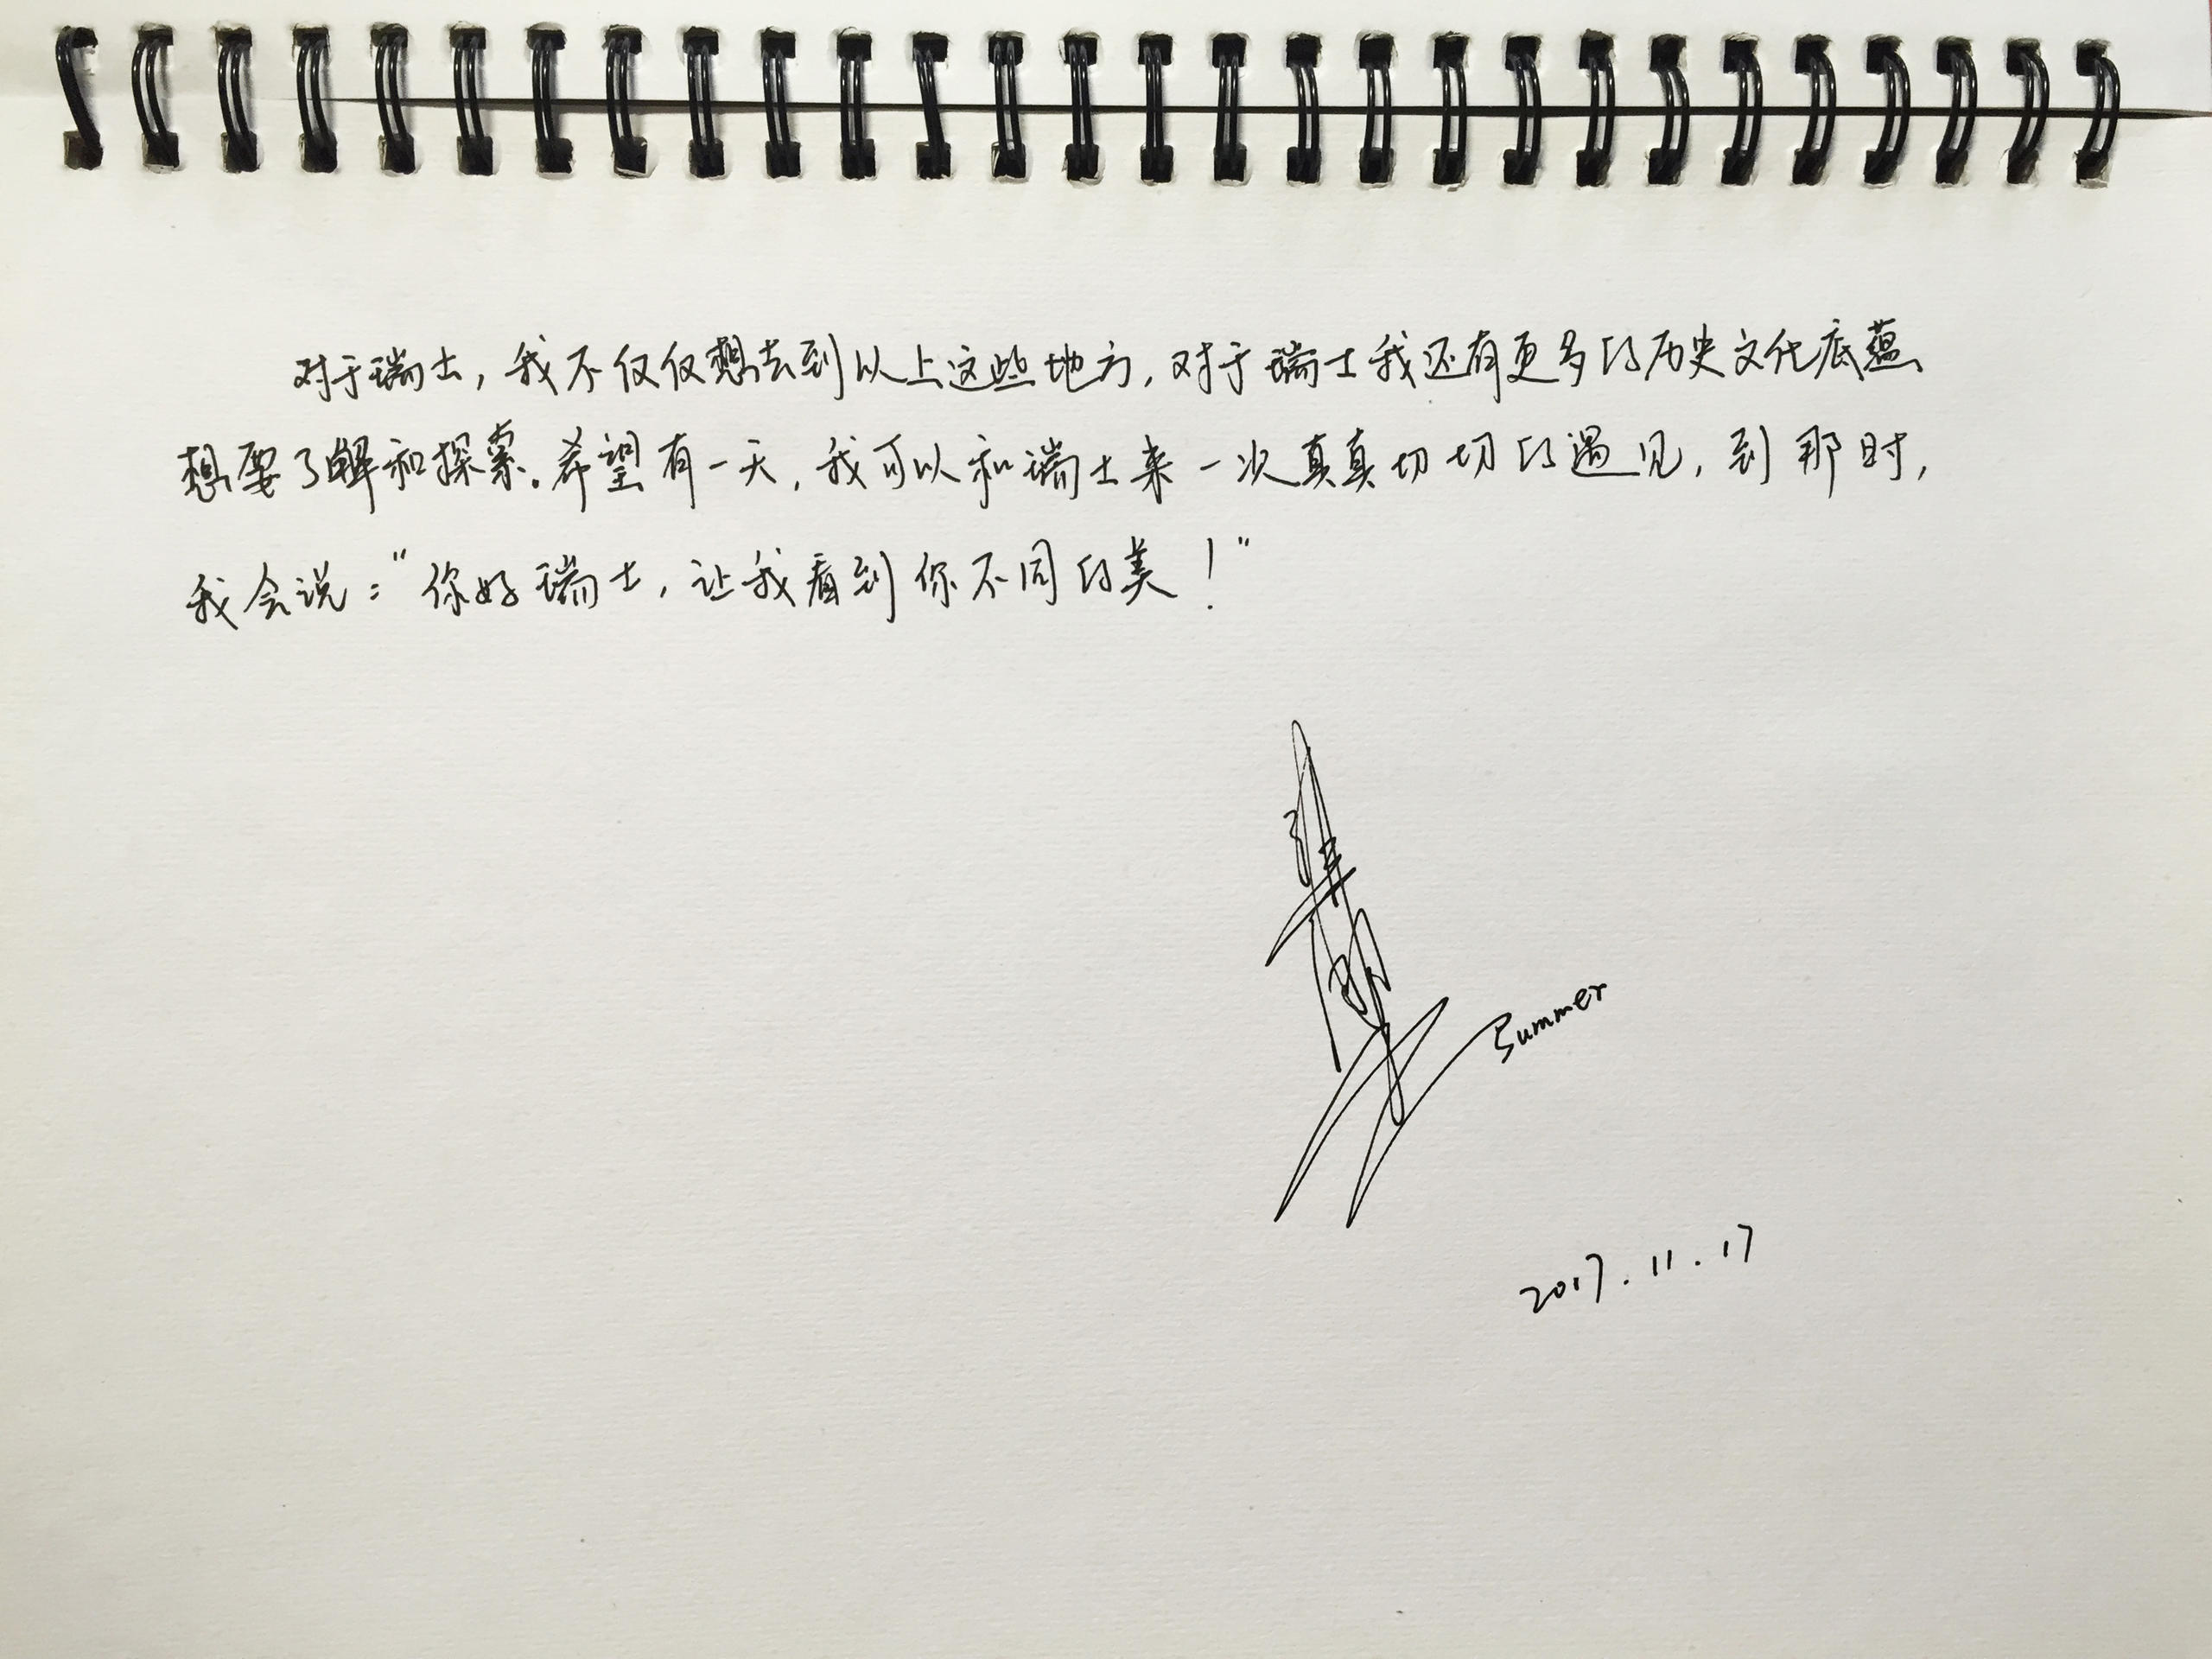 对于瑞士，我不仅仅想去到以上这些地方，对于瑞士我还有更多的历史文化底蕴
想要了解和探索。希望有一天，我可以和瑞士来一次真真切切的遇见，到那时，
我会说：“你好瑞士，让我看到你不同的美！”
Summer
2017.11.17